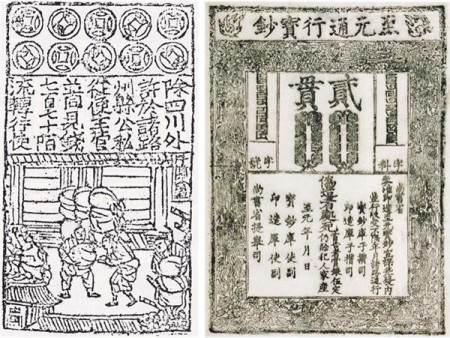 除四川外
許於諸路
州縣公私
從便主管
並同見錢
七百七十陌
流轉行使
至元通行寶鈔
貳貫
字料
字號
尚書省
奏准印造至元寶鈔宣課差役內
並行收受不限年月諸路通行
寶鈔庫子攢司
印造庫子攢司
偽造者處死
首告者賞銀伍定
仍給犯人家產
至元 年 月 日
寶鈔庫使副
印造庫使副
尚書省提舉司